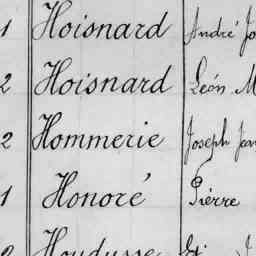 1 Hoisnard André Jo
2 Hoisnard Léon M
2 Hommerie Joseph Jea
1 Honoré Pierre
Houdusse